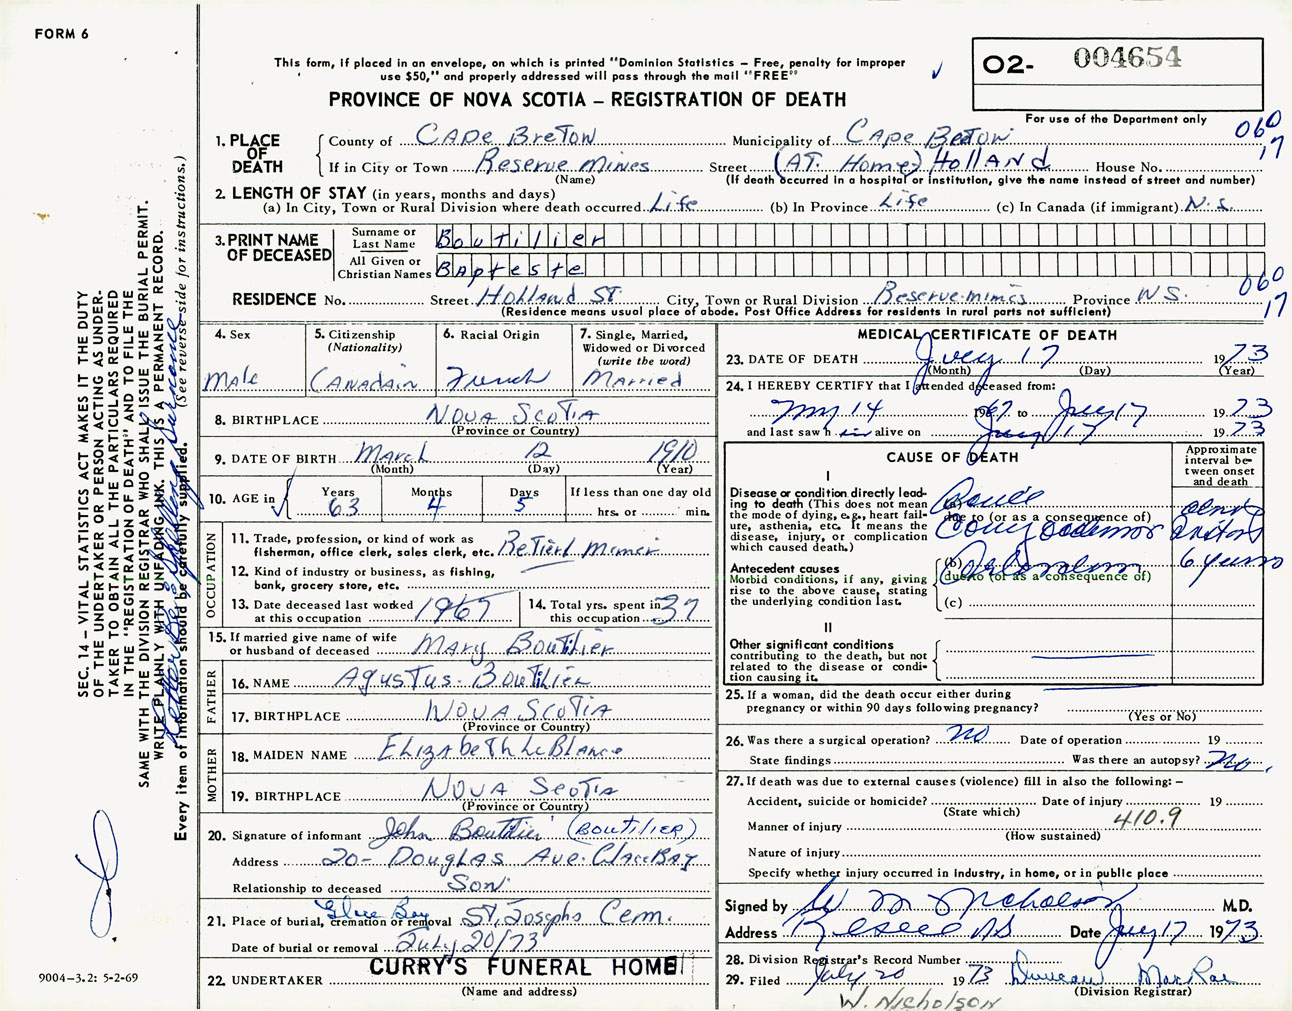 FORM 6
This form, if placed in an envelope, on which is printed "Dominion Statistics – Free, penalty for improper
use $50," and properly addressed will pass through the mail "FREE"
02- 004654
For use of the Department only
PROVINCE OF NOVA SCOTIA – REGISTRATION OF DEATH
060
17
1. PLACE OF DEATH
County of Cape Breton Municipality of Cape Breton
If in City or Town Reserve Mines Street (AT. Home) Holland House No.
(Name) (If death occurred in a hospital or institution, give the name instead of street and number)
2. LENGTH OF STAY (in years, months and days)
(a) In City, Town or Rural Division where death occurred Life (b) In Province Life (c) In Canada (if immigrant) N.S.
3. PRINT NAME OF DECEASED
Surname or Last Name Boutilier
All Given or Christian Names Bapteste
060
17
RESIDENCE No. Street Holland St. City, Town or Rural Division Reserve mines Province N.S.
(Residence means usual place of abode. Post Office Address for residents in rural parts not sufficient)
4. Sex
Male
5. Citizenship
(Nationality)
Canadain
6. Racial Origin
French
7. Single, Married,
Widowed or Divorced
(write the word)
Married
8. BIRTHPLACE Nova Scotia
(Province or Country)
9. DATE OF BIRTH March 12 1910
(Month) (Day) (Year)
10. AGE in Years 63 Months 4 Days 5 If less than one day old
hrs. or min.
OCCUPATION
11. Trade, profession, or kind of work as
fisherman, office clerk, sales clerk, etc. Retierd
12. Kind of industry or business, as fishing,
bank, grocery store, etc.
13. Date deceased last worked
at this occupation 1967
14. Total yrs. spent in
this occupation 37
15. If married give name of wife
or husband of deceased Mary Boutilier
FATHER
16. NAME Agustus Boutilier
17. BIRTHPLACE Nova Scotia
(Province or Country)
MOTHER
18. MAIDEN NAME Elizabeth LeBlanc
19. BIRTHPLACE Nova Scotia
(Province or Country)
20. Signature of informant John Boutilier (BOUTILIER)
Address 20- Douglas Ave. Glace Bay
Relationship to deceased Son
21. Place of burial, cremation or removal Glace Bay St. Josephs Cem.
Date of burial or removal July 20/73
22. UNDERTAKER CURRY'S FUNERAL HOME
(Name and address)
MEDICAL CERTIFICATE OF DEATH
23. DATE OF DEATH July 17 1973
(Month) (Day) (Year)
24. I HEREBY CERTIFY that I attended deceased from:
14 1967 to July 17 1973
and last saw h im alive on July 17 1973
CAUSE OF DEATH
Approximate
interval be-
tween onset
and death
I
Disease or condition directly lead-
ing to death (This does not mean
the mode of dying, e.g., heart fail-
ure, asthenia, etc. It means the
disease, injury, or complication
which caused death.)
(a)
due to (or as a consequence of)
Antecedent causes
Morbid conditions, if any, giving
rise to the above cause, stating
the underlying condition last.
(b) 6 years
due to (or as a consequence of)
(c)
II
Other significant conditions
contributing to the death, but not
related to the disease or condi-
tion causing it.
25. If a woman, did the death occur either during
pregnancy or within 90 days following pregnancy?
(Yes or No)
26. Was there a surgical operation? No Date of operation 19
State findings Was there an autopsy? No.
27. If death was due to external causes (violence) fill in also the following: –
Accident, suicide or homicide? Date of injury 19
(State which)
410.9
Manner of injury
(How sustained)
Nature of injury
Specify whether injury occurred in industry, in home, or in public place
Signed by M Nicholson M.D.
Address Reserve NS Date July 17 1973
28. Division Registrar's Record Number
29. Filed July 20 1973 Duncan MacRae
(Division Registrar)
W. Nicholson
SEC. 14 – VITAL STATISTICS ACT MAKES IT THE DUTY
OF THE UNDERTAKER OR PERSON ACTING AS UNDER-
TAKER TO OBTAIN ALL THE PARTICULARS REQUIRED
IN THE "REGISTRATION OF DEATH" AND TO FILE THE
SAME WITH THE DIVISION REGISTRAR WHO SHALL ISSUE THE BURIAL PERMIT.
WRITE PLAINLY WITH UNFADING INK. THIS IS A PERMANENT RECORD.
Every item of information should be carefully supplied. (See reverse side for instructions.)
9004–3.2: 5-2-69